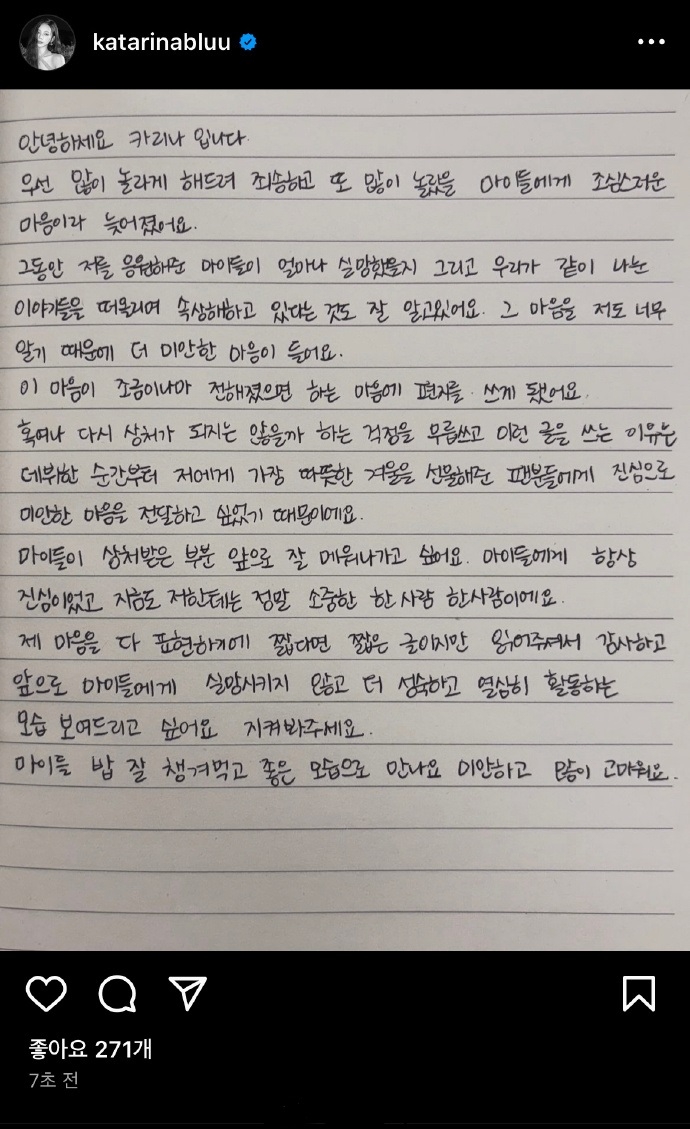 katarinabluu
안녕하세요 카리나 입니다.
우선 많이 놀라게 해드려 죄송하고 또 많이 놀랐을 마이들에게 조심스러운
마음이라 늦어졌어요.
그동안 저를 응원해준 마이들이 얼마나 실망했을지 그리고 우리가 같이 나눈
이야기들을 떠올리며 속상해하고 있다는 것도 잘 알고있어요. 그 마음을 저도 너무
알기 때문에 더 미안한 마음이 들어요.
이 마음이 조금이나마 전해졌으면 하는 마음에 편지를 쓰게 됐어요.
혹여나 다시 상처가 되지는 않을까 하는 걱정을 무릅쓰고 이런 글을 쓰는 이유는
데뷔한 순간부터 저에게 가장 따뜻한 겨울을 선물해준 팬분들에게 진심으로
미안한 마음을 전달하고 싶었기 때문이에요.
마이들이 상처받은 부분 앞으로 잘 메워나가고 싶어요. 마이들에게 항상
진심이었고 지금도 저한테는 정말 소중한 한 사람 한사람이에요.
제 마음을 다 표현하기에 짧다면 짧은 글이지만 읽어주셔서 감사하고
앞으로 마이들에게 실망시키지 않고 더 성숙하고 열심히 활동하는
모습 보여드리고 싶어요 지켜봐주세요.
마이들 밥 잘 챙겨먹고 좋은 모습으로 만나요 미안하고 많이 고마워요.
좋아요 271개
7초 전